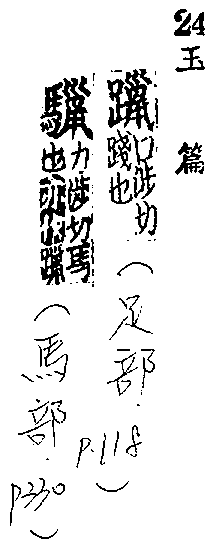 24
玉篇
躐 口涉切
踐也
(足部. P.118)
力涉切馬
也
(馬部. P330)